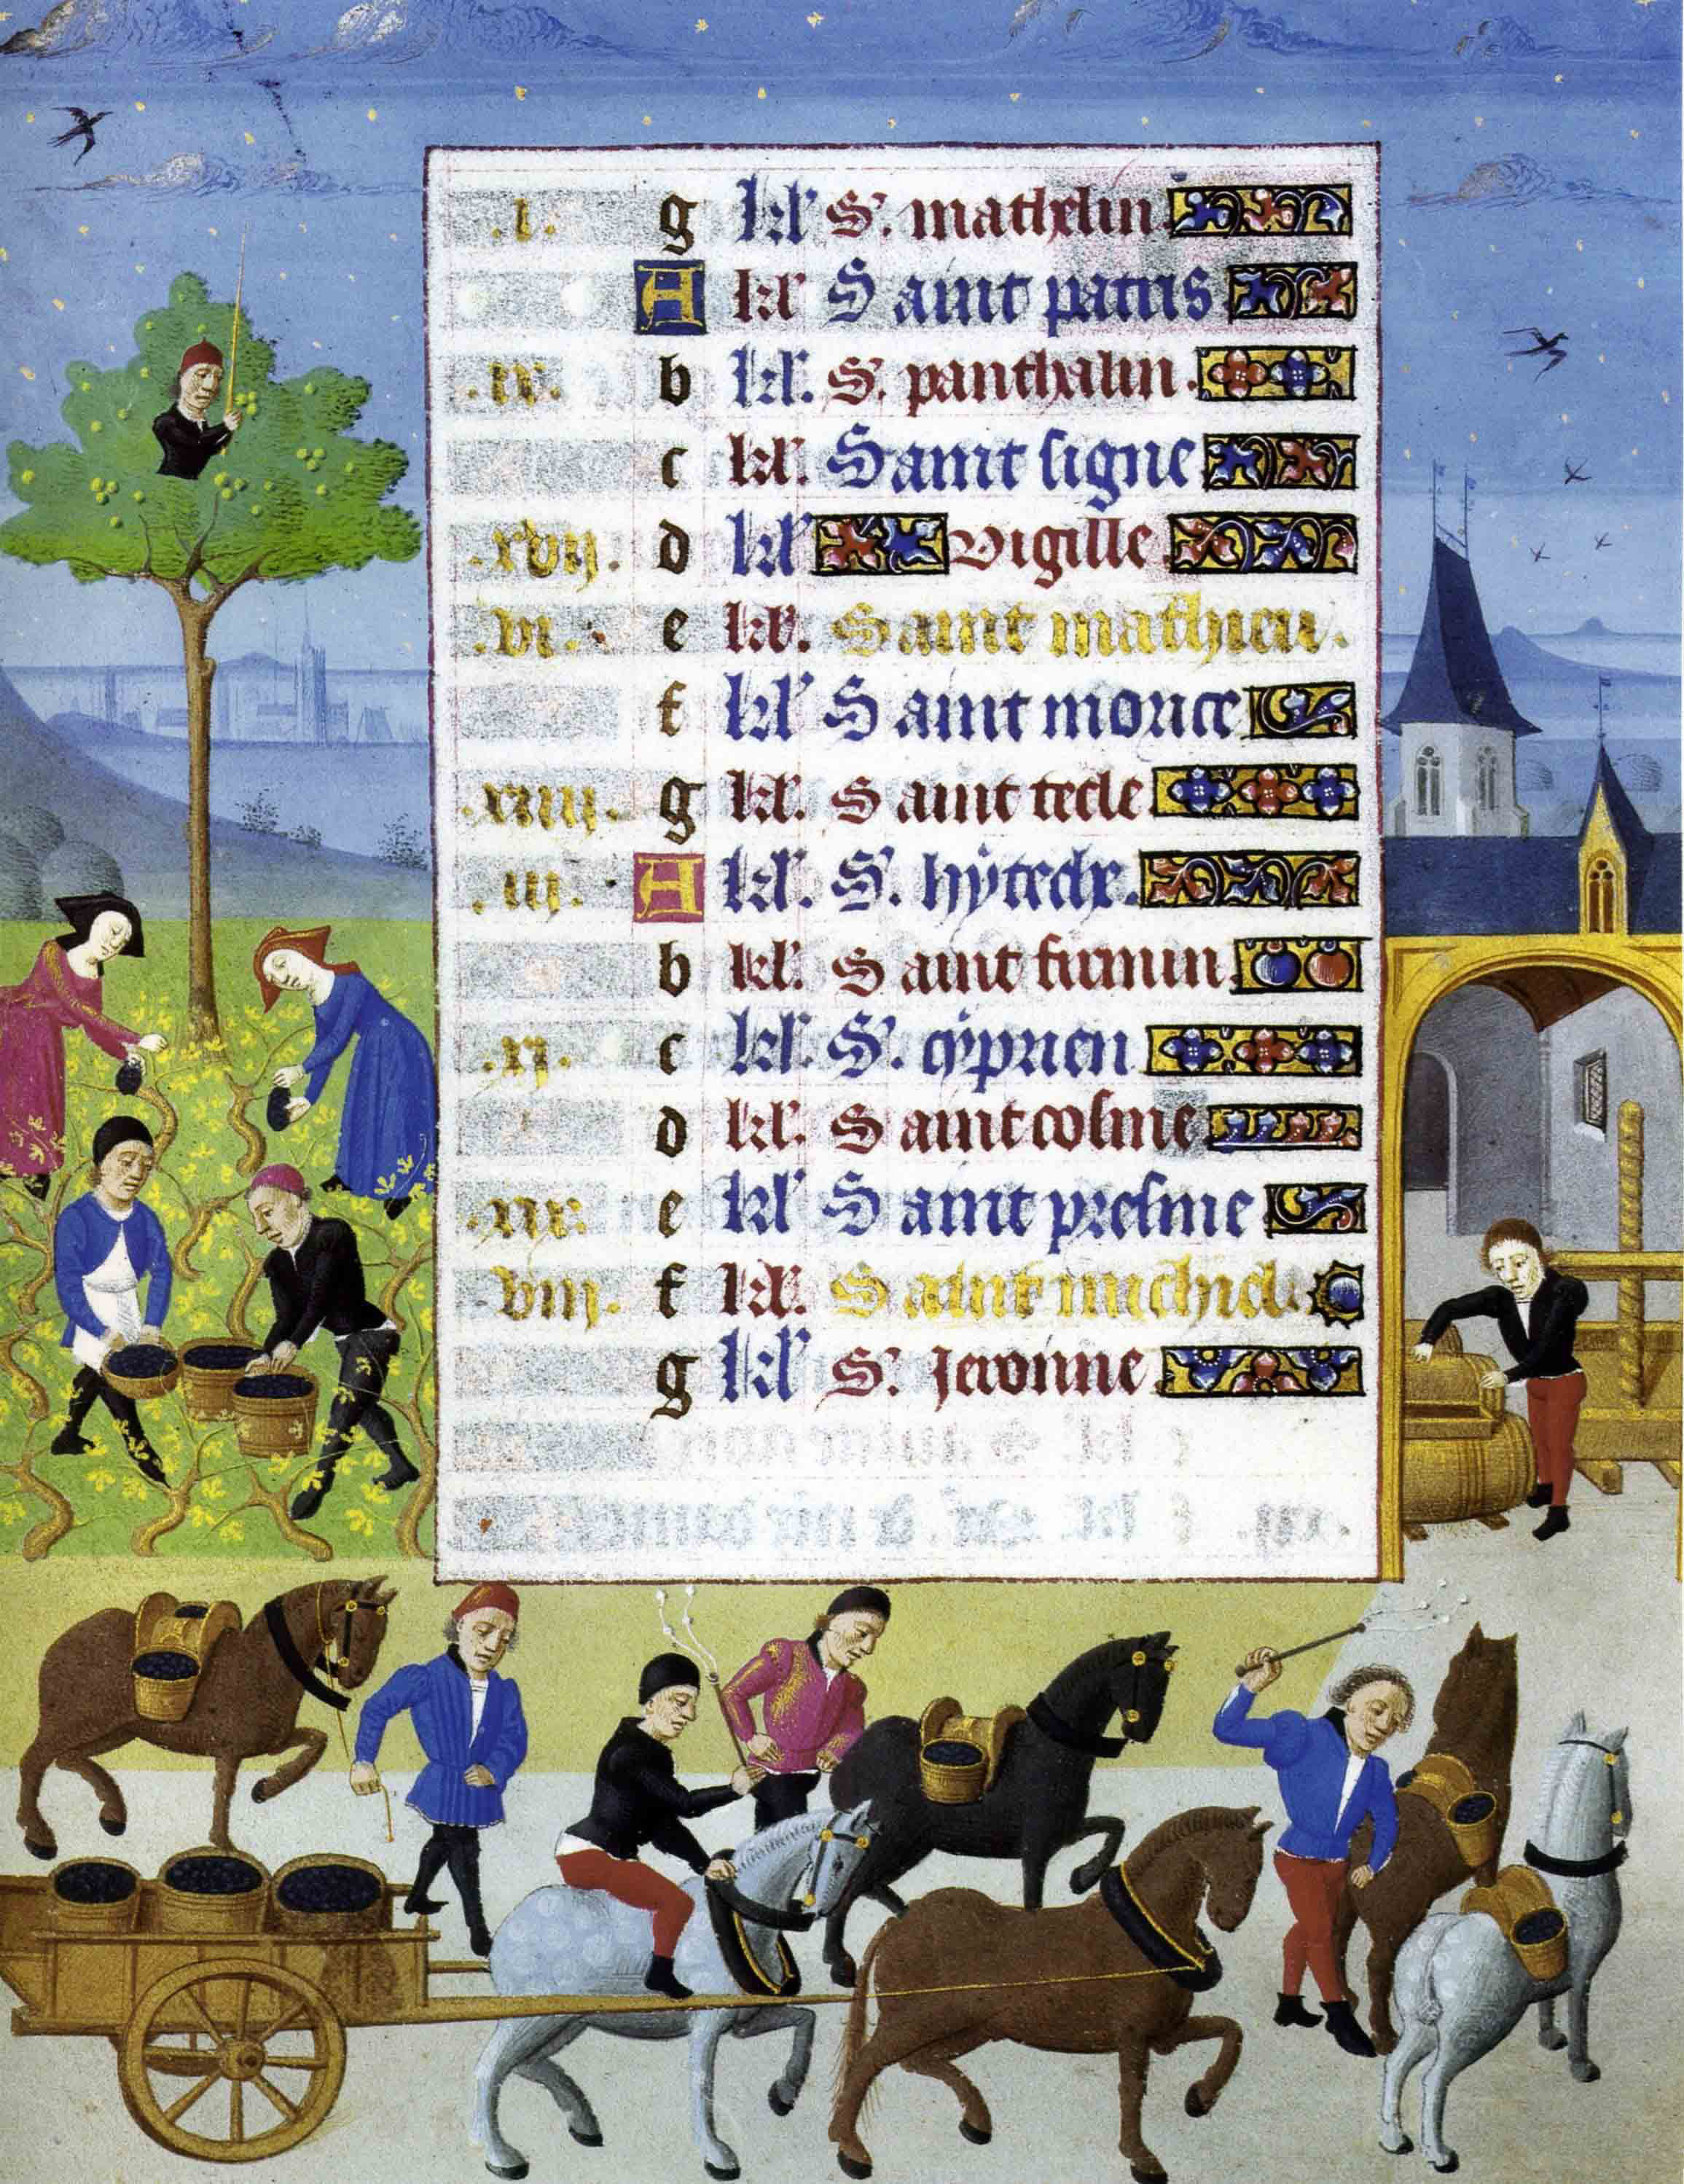 .i. g kl' S'. mathelin
A kl' Saint patris
.ix. b kl'. S'. panthalin.
c kl'. Saint signe
.xvij. d kl' vigille
.vi. e kl'. Saint mathieu.
f kl' Saint morice
.xiiij. g kl'. Saint tecle
.iij. A kl'. S'.
b kl'. Saint firmin
.xj. c kl'. S'. cyprien
d kl'. Saint cosme
.xix. e kl' Saint presme
.viij. f kl'. Saint michiel.
g kl' S'. Jeronime